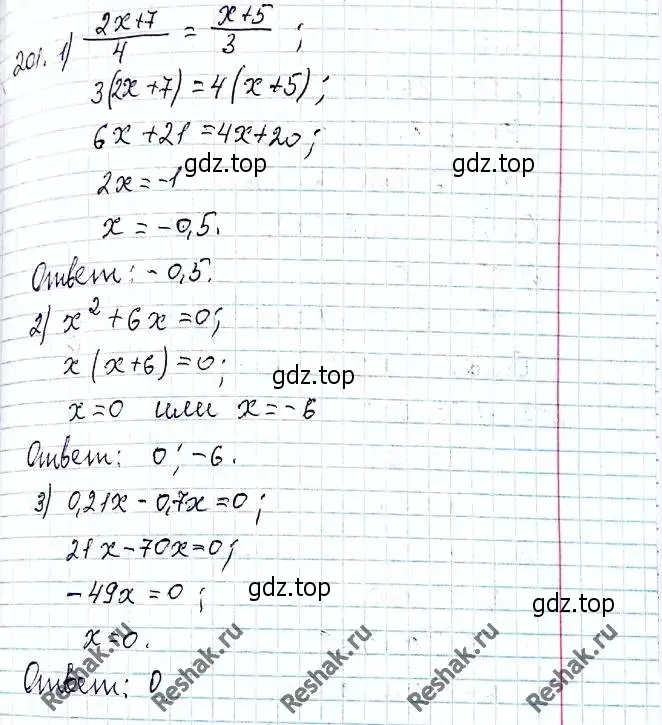 201. 1) (2x+7)/4 = (x+5)/3 ;
3(2x+7)=4(x+5);
6x+21=4x+20;
gdz.top gdz.top
2x=-1
x=-0,5.
Ответ: -0,5.
2) x²+6x=0;
x(x+6)=0;
gdz.top
x=0 или x=-6
Ответ: 0; -6.
3) 0,21x-0,7x=0;
21x-70x=0;
-49x=0;
gdz.top gdz.top
x=0.
Ответ: 0
Reshak.ru Reshak.ru Reshak.ru Reshak.ru Reshak.ru